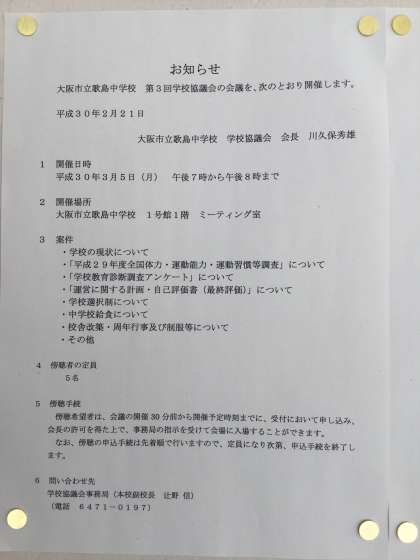 お知らせ
大阪市立歌島中学校　第３回学校協議会の会議を、次のとおり開催します。
平成３０年２月２１日
大阪市立歌島中学校　学校協議会　会長　川久保秀雄
１　開催日時
平成３０年３月５日（月）　午後７時から午後８時まで
２　開催場所
大阪市立歌島中学校　１号館１階　ミーティング室
３　案件
・学校の現状について
・「平成２９年度全国体力・運動能力・運動習慣等調査」について
・「学校教育診断調査アンケート」について
・「運営に関する計画・自己評価書（最終評価）」について
・学校選択制について
・中学校給食について
・校舎改築・周年行事及び制服等について
・その他
４　傍聴者の定員
５名
５　傍聴手続
傍聴希望者は、会議の開催 30 分前から開催予定時刻までに、受付において申し込み、
会長の許可を得た上で、事務局の指示を受けて会場に入場することができます。
なお、傍聴の申込手続は先着順で行いますので、定員になり次第、申込手続を終了し
ます。
６　問い合わせ先
学校協議会事務局（本校副校長　辻野 信）
（電話　６４７１ー０１９７）